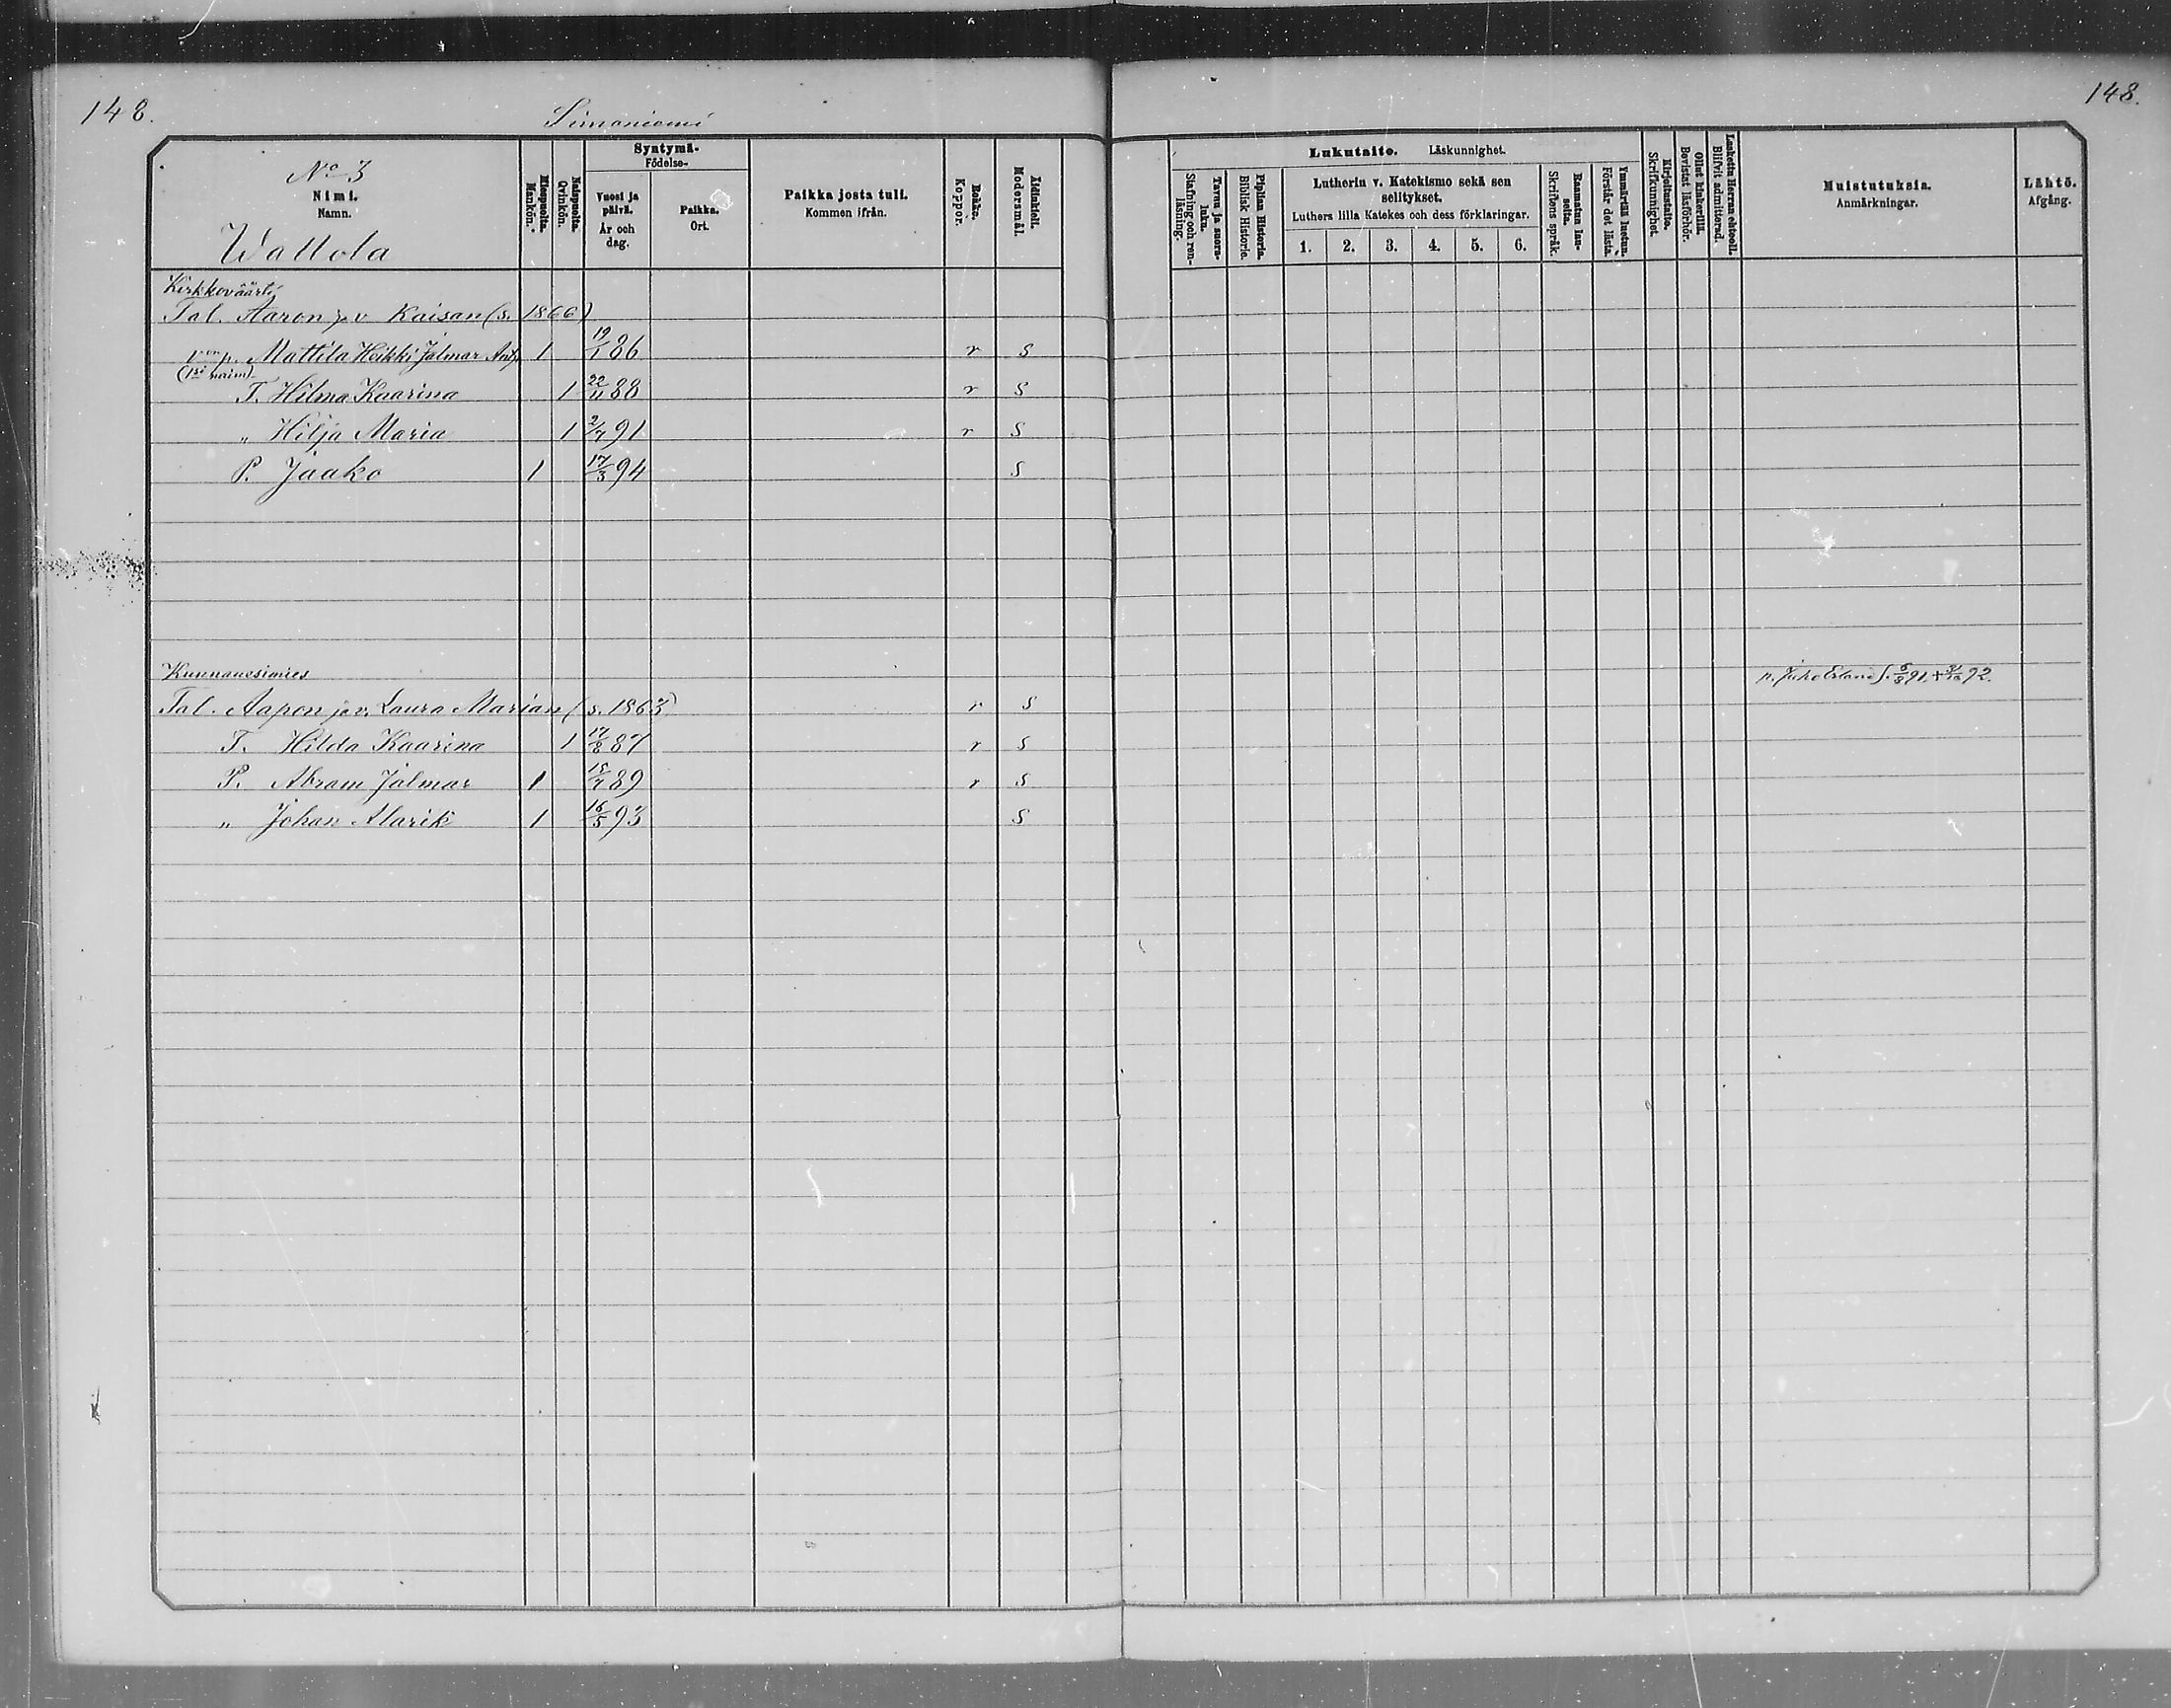 148.
Simoniemi
148.
No 3
Nimi.
Namn.
Wattola
Miespuolta.
Mankön.
Naispuolta.
Qvinkön.
Syntymä-
Födelse-
Vuosi ja päivä.
År och dag.
Paikka.
Ort.
Paikka josta tuli.
Kommen ifrån.
Rokko.
Koppor.
Äidinkieli.
Modersmål.
Lukutaito. Läskunnighet.
Tavuu ja suora-luku.
Stafning och ren-läsning.
Piplian Historia.
Biblisk Historie.
Lutherin v. Katekismo sekä sen
selitykset.
Luthers lilla Katekes och dess förklaringar.
1. 2. 3. 4. 5. 6.
Raamatun lau-seita.
Skriftens språk.
Ymmärtää luetun.
Förstår det lästa.
Kirjoitustaito.
Skrifkunnighet.
Ollut kinkerillä.
Bevistat läsförhör.
Laskettu Herran ehtoolli.
Blifvit admitterad.
Muistutuksia.
Anmärkningar.
Lähtö.
Afgång.
Kirkkoväärti
Tal. Aaron ja v. Kaisan (s. 1866)
p. Mattila Heikki Jalmar Ant. 1 19/1 86 r S
(1si naim)
T. Hilma Kaarina 1 22/11 88 r S
„ Hilja Maria 1 2/7 91 r S
P. Jaako 1 17/3 94 S
Kunnanesimies
p. Juho Erland s. 5/8 91. + 92.
Tal. Aapon ja v. Laura Marian (s. 1863) r S
T. Hilda Kaarina 1 17/8 87 r S
P. Abram Jalmar 1 15/7 89 r S
„ Johan Alarik 1 16/5 93 S